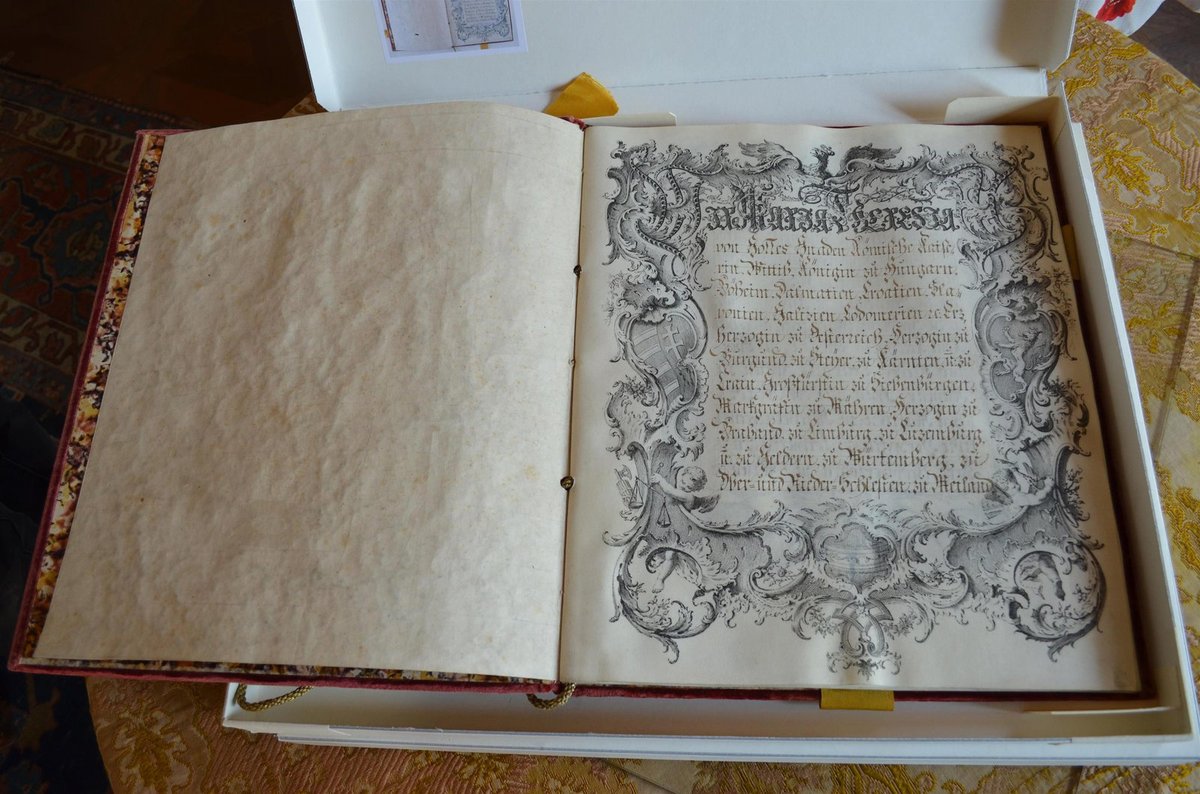 Wir Maria Theresia
von Gottes Gnaden Römische Kaise,
rin, Wittib, Königin zu Hungarn,
Böheim, Dalmatien, Croatien, Sla,
vonien, Galizien, Lodomerien ꝛc. Erz
Herzogin zu Österreich, Herzogin zu
Burgund, zu Steyer, zu Kärnten, u. zu
Crain, Großfürstin zu Siebenbürgen,
Markgräfin zu Mähren, Herzogin zu
Braband, zu Limburg, zu Luzemburg
u. zu Geldern, zu Würtemberg, zu
Ober- und Nieder-Schlesien, zu Meiland